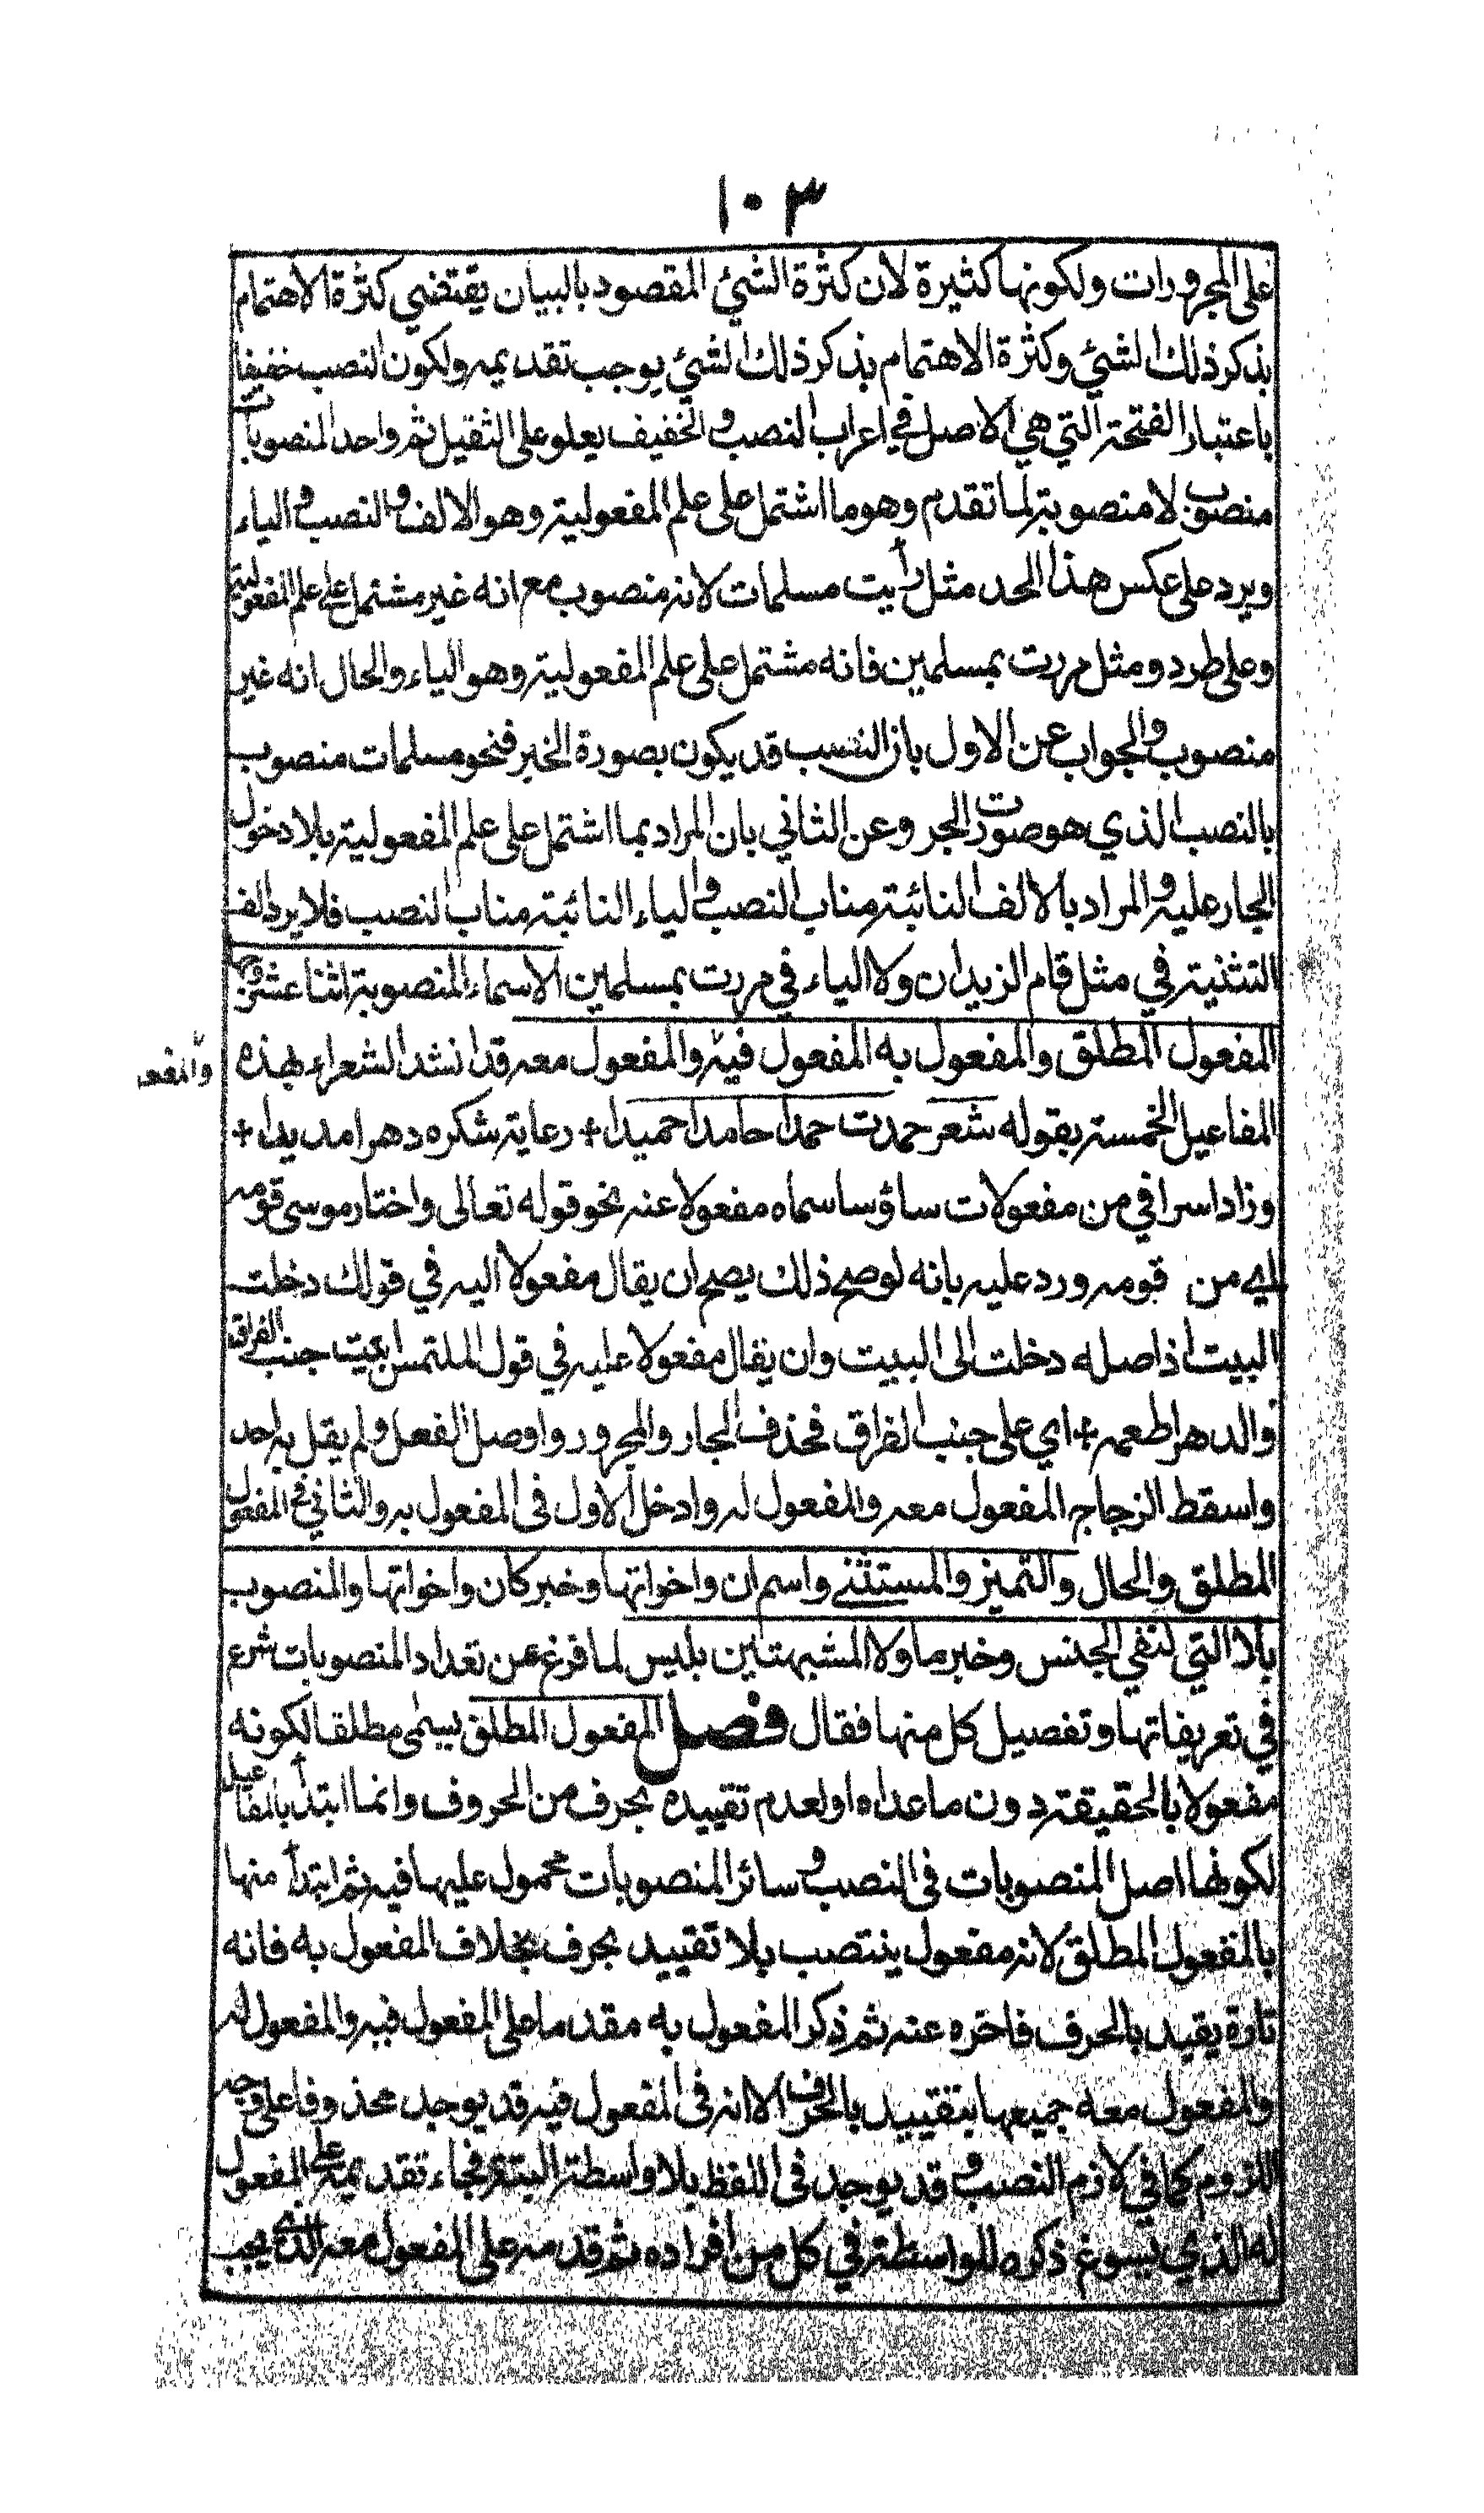 ١٠٣
على المجرورات ولكونها كثيرة لان كثرة الشئ المقصود بالبيان يقتضي كثرة الاهتمام
بذكر ذلك الشئي وكثرة الاهتمام بذكر ذلك الشئي يوجب تقديمه ولكون النصب خفيفا
باعتبار الفتحة التي هي الاصل في اعراب النصب والخفيف يعلو على الثقيل ثم واحد المنصوبات
منصوب لا منصوبة لما تقدم وهو ما اشتمل على علم المفعولية وهو الالف والنصب والياء
ويرد على عكس هذا الحد مثل رأيت مسلمات لانه منصوب مع انه غير مشتمل على علم المفعولية
وعلى طرده ومثل مررت بمسلمين فانه مشتمل على علم المفعولية وهو الياء والحال انه غير
منصوب والجواب عن الاول بان النصب قد يكون بصورة الخبر فنحو مسلمات منصوب
بالنصب الذي هو صورت الجر وعن الثاني بان المراد بما اشتمل على علم المفعولية بلا دخول
الجار عليه والمراد بالالف النائبة مناب النصب والياء النائبة مناب النصب فلا يرد الف
التثنية في مثل قام الزيدان ولا الياء في مررت بمسلمين الاسماء المنصوبة اثنا عشر
المفعول المطلق والمفعول به المفعول فيه والمفعول معه قد انشد الشعراء بهذه
والمفعو
المفاعيل الخمسة بقوله شعر حمدت حمدا حامدا حميدا + رعاية شكره دهرا مديدا +
وزاد اسرافي من مفعولات ساؤسا سماه مفعولا عنه نحو قوله تعالى واختار موسى قومه
اي من قومه ورد عليه بانه لو صح ذلك يصح ان يقال مفعولا اليه في قولك دخلت
البيت اذ اصله دخلت الى البيت وان يقال مفعولا عليه في قول الملتمس ابعيت جنب الفراق
والدهر اطعمه + اي على جنب الفراق فحذف الجار والمجرور واوصل الفعل ولم يقل به احد
واسقط الزجاج المفعول معه والمفعول له وادخل الاول في المفعول به والثاني في المفعول
المطلق والحال والتميز والمستثنى واسم ان واخواتها وخبر كان واخواتها والمنصوب
بلا التي لنفي الجنس وخبر ما ولا المشبهتين بليس لما فرغ عن تعداد المنصوبات شرع
في تعريفاتها وتفصيل كل منها فقال فصل المفعول المطلق يسمى مطلقا لكونه
مفعولا بالحقيقة دون ما عداه او لعدم تقييده بحرف من الحروف وانما ابتدأ بالمفاعيل
لكونها اصل المنصوبات في النصب وسائر المنصوبات محمول عليها فيه ثم ابتدأ منها
بالمفعول المطلق لانه مفعول ينتصب بلا تقييد بحرف بخلاف المفعول به فانه
تارة يقيد بالحرف فاخره عنه ثم ذكر المفعول به مقدما على المفعول فيه والمفعول له
والمفعول معه جميعها بتقييد بالحرف الا انه في المفعول فيه قد يوجد محذوفا على وجه
اللزوم كما في لازم النصب وقد يوجد في اللفظ بلا واسطة البتة فجاء تقديمه على المفعول
له الذي يسوغ ذكره للواسطة في كل من افراده ثم قدمه على المفعول معه الذي يجب